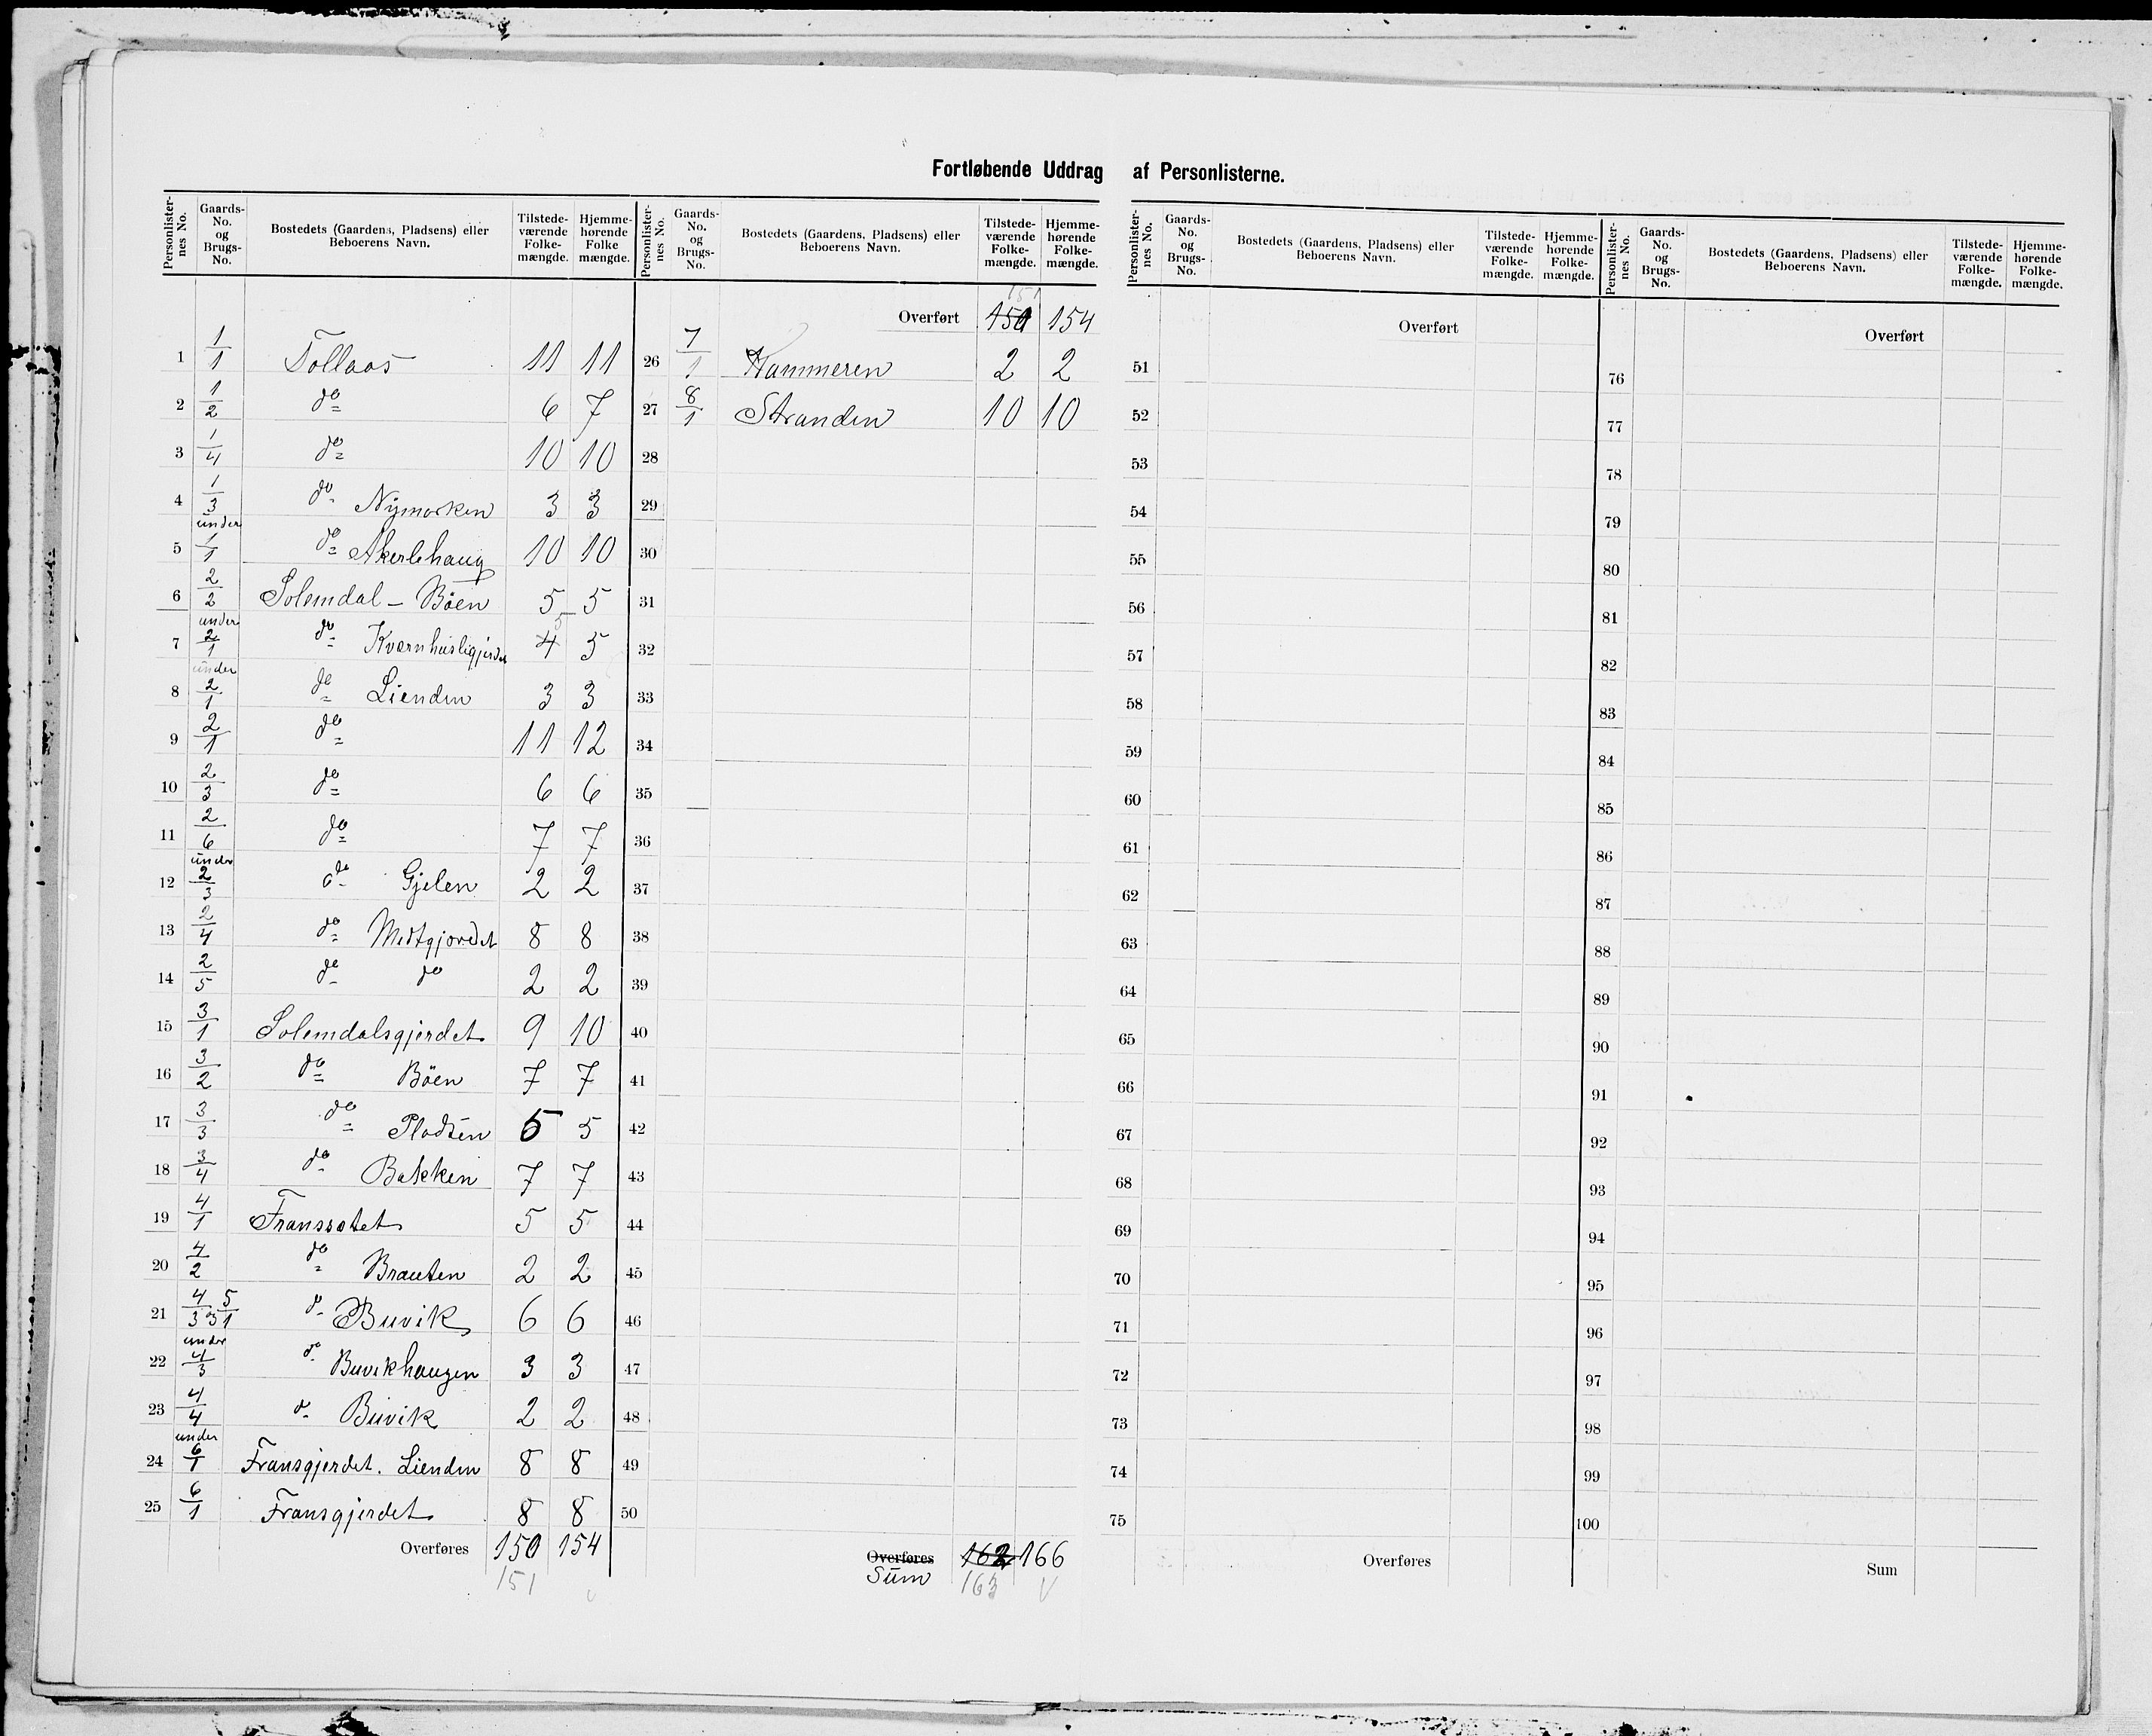 Fortløbende Uddrag af Personlisterne.
Personlisternes No. Gaards-No. og Brugs-No. Bostedets (Gaardens, Pladsens) eller Beboerens Navn. Tilstedeværende Folkemængde. Hjemmehørende Folkemængde.
1 1/1 Tollaas 11 11
2 1/2 do 6 7
3 1/4 do 10 10
4 1/3 do Nymoken 3 3
5 under 1/1 do Akerlehaug 10 10
6 2/2 Solemdal - Böen 5 5
7 under 2/1 do Kværnhusligjerdet 4 5 5
8 under 2/1 do Lienden 3 3
9 2/1 do 11 12
10 2/3 do 6 6
11 2/6 do 7 7
12 under 2/3 do Gjelen 2 2
13 2/4 do Midtgjordet 8 8
14 2/5 do do 2 2
15 3/1 Solemdalsgjerdet 9 10
16 3/2 do Böen 7 7
17 3/3 do Pladsen 5 5
18 3/4 do Bakken 7 7
19 4/1 Franssætet 5 5
20 4/2 do Brauten 2 2
21 4/3 og 5/1 do Buvik 6 6
22 under 4/3 do Buvikhaugen 3 3
23 4/4 do Buvik 2 2
24 under 6/1 Fransgjerdet. Lienden 8 8
25 6/1 Fransgjerdet 8 8
Overføres 150 154
151
Personlisternes No. Gaards-No. og Brugs-No. Bostedets (Gaardens, Pladsens) eller Beboerens Navn. Tilstedeværende Folkemængde. Hjemmehørende Folkemængde.
151
Overført 150 154
26 7/1 Hammeren 2 2
27 8/1 Stranden 10 10
28
29
30
31
32
33
34
35
36
37
38
39
40
41
42
43
44
45
46
47
48
49
50
Overføres 162 166
Sum 163
Personlisternes No. Gaards-No. og Brugs-No. Bostedets (Gaardens, Pladsens) eller Beboerens Navn. Tilstedeværende Folkemængde. Hjemmehørende Folkemængde.
Overført
51
52
53
54
55
56
57
58
59
60
61
62
63
64
65
66
67
68
69
70
71
72
73
74
75
Overføres
Personlisternes No. Gaards-No. og Brugs-No. Bostedets (Gaardens, Pladsens) eller Beboerens Navn. Tilstedeværende Folkemængde. Hjemmehørende Folkemængde.
Overført
76
77
78
79
80
81
82
83
84
85
86
87
88
89
90
91
92
93
94
95
96
97
98
99
100
Sum